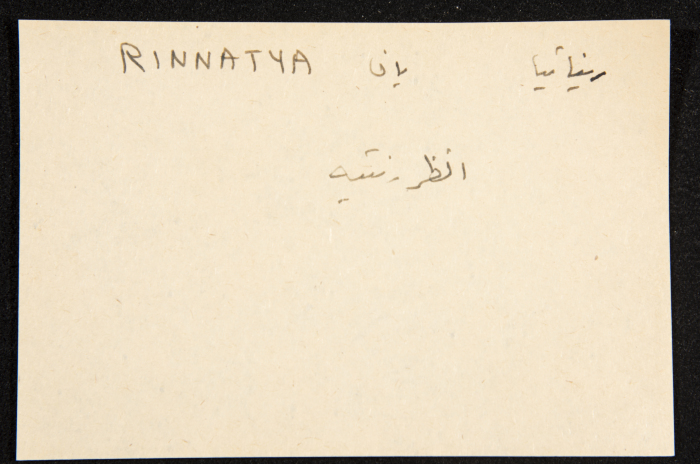 RINNATYA يافا رنياتيا
انظر رنتيه